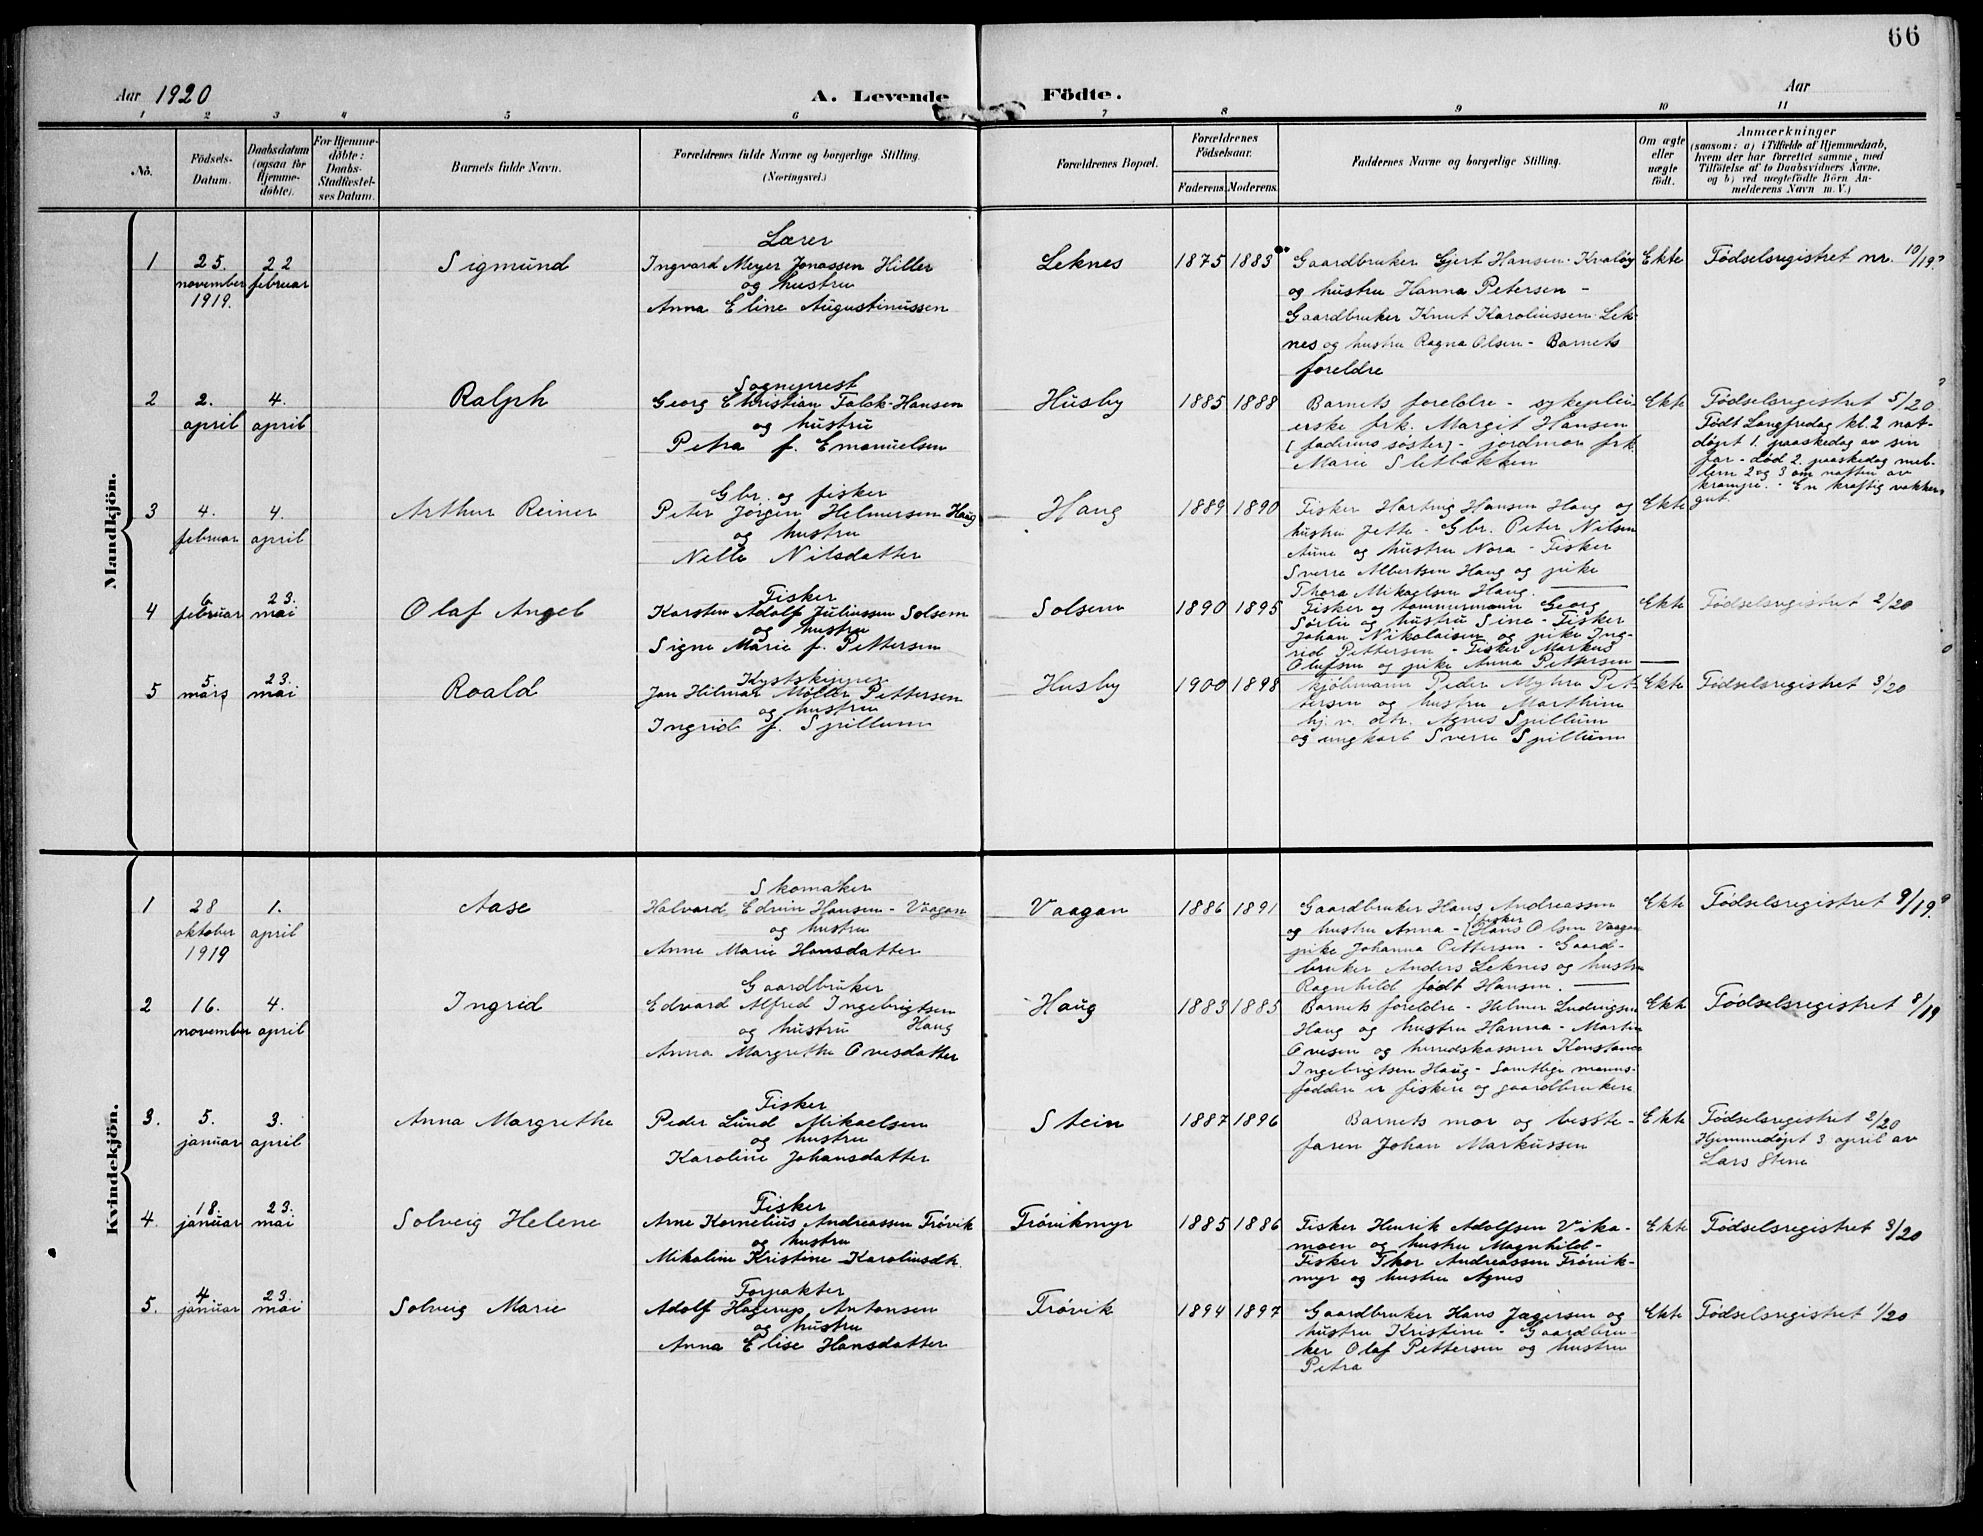 66
Aar 1920
A. Levende Födte.
Aar
1 2 3 4 5 6 7 8 9 10 11
No.
Födsels-Datum.
Daabsdatum (ogsaa for Hjemme-döbte).
For Hjemme-döbte: Daabs-Stadfæstel-ses Datum.
Barnets fulde Navn.
Forældrenes fulde Navne og borgerlige Stilling.
(Næringsvei.)
Forældrenes Bopæl.
Forældrenes Födselsaar.
Faderens. Moderens.
Faddernes Navne og borgerlige Stilling.
Om ægte eller uægte födt.
Anmærkninger
(saasom: a) i Tilfælde af Hjemmedaab,
hvem der har forrettet samme, med
Tilföielse af to Daabsvidners Navne.
og b) ved uægtefödte Börn An-
melderens Navn m. V.)
Mandkjön.
1
25. november 1919.
22 februar
Sigmund
Lærer
Ingvard Meyer Jonassen Hiller
og hustru
Anna Eline Augustinussen
Leknes
1875 1883
Gaardbruker Gjert Hansen Kvaløy
og hustru Hanna Petersen -
Gaardbruker Knut Karoliussen Lek-
nes og hustru Ragna Olsen - Barnets
foreldre
Ekte
Fødselsregistret nr. 10/19?
2
2. april
4. april
Ralph
Sogneprest
Georg Christian Falck-Hansen
og hustru
Petra f. Emanuelsen
Husby
1885 1888
Barnets foreldre - sykeplei-
erske frk. Margit Hansen
(faderens søster) - jordmor frk.
Marie Sletbakken
Ekte
Fødselsregistret 5/20
Født Langfredag kl. 2 nat-
døpt 1. paaskedag av sin
far - død 2. paaskedag mel-
lem 2 og 3 om natten av
krampe. - En kraftig vakker
gut.
3
4. februar
4. april
Arthur Reiner
Gbr. og fisker
Peter Jørgen Helmersen Haug
og hustru
Nelle Nilsdatter
Haug
1889 1890
Fisker Hartvig Hansen Haug og
hustru Jette - Gbr. Peter Nilsen
Aune og hustru Nora - Fisker
Sverre Albertsen Haug og pike
Thora Mikaelsen Haug.
Ekte
4
6. februar
23. mai
Olaf Angel
Fisker
Karsten Adolf Juliussen Solsem
og hustru
Signe Marie f. Pettersen
Solsem
1890 1895
Fisker og tømmermann Georg
Sørlie og hustru Sine - Fisker
Johan Nikolaisen og pike Ing-
rid Pettersen - Fisker Markus
Olufsen og pike Anna Pettersen
Ekte
Fødselsregistret 2/20
5
5. mars
23. mai
Roald
Kystskipper
Jan Hilmar Møller Pettersen
og hustru
Ingrid f. Spillum
Husby
1900 1898
Kjøbmann Peder Myhre Pet-
tersen og hustru Marthine
hj. v. dtr. Agnes Spillum
og ungkarl Sverre Spillum
Ekte
Fødselsregistret 3/20
Kvindekjön.
1
28 oktober 1919
1. april
Aase
Skomaker
Halvard Edvin Hansen - Vaagan
og hustru
Anne Marie Hansdatter
Vaagan
1886 1891
Gaardbruker Hans Andreassen
og hustru Anna - Fisker Hans Olsen Vaagan
pike Johanna Pettersen - Gaard-
bruker Anders Leknes og hustru
Ragnhild født Hansen.
Ekte
Fødselsregistret 9/19?
2
16. november
4. april
Ingrid
Gaardbruker
Edvard Alfred Ingebrigtsen
og hustru Haug
Anna Margrethe Ovesdatter
Haug
1883 1885
Barnets foreldre - Helmer Ludvigsen
Haug og hustru Hanna - Martin
Ovesen og herredskasserer Konstance
Ingebrigtsen Haug - Samtlige manns-
faddere er fiskere og gaardbrukere
Ekte
Fødselsregistret 8/19
3.
5. januar
3. april
Anna Margrethe
Fisker
Peder Lund Mikaelsen
og hustru
Karoline Johansdatter
Stein
1887 1896
Barnets mor og besste-
faren Johan Markussen
Ekte
Fødselsregistret 2/20
Hjemmedøpt 3. april av
Lars Stene
4.
18. januar
23. mai
Solveig Helene
Fisker
Arne Kornelius Andreassen Frøvik
og hustru
Mikaline Kristine Karoliusdtr.
Frøvikmyr
1885 1886
Fisker Henrik Adolfsen Vika-
moen og hustru Magnhild-
Fisker Thor Andreassen Frøvik-
myr og hustru Agnes
Ekte
Fødselsregistret 3/20
5.
4. januar
23. mai
Solveig Marie
Forpakter
Adolf Hagerup Antonsen
og hustru
Anna Elise Hansdatter
Frøvik
1894 1897
Gaardbruker Hans Jægersen og
hustru Kristine - Gaardbru-
ker Olaf Pettersen og hustru
Petra
Ekte
Fødselsregistret 1/20